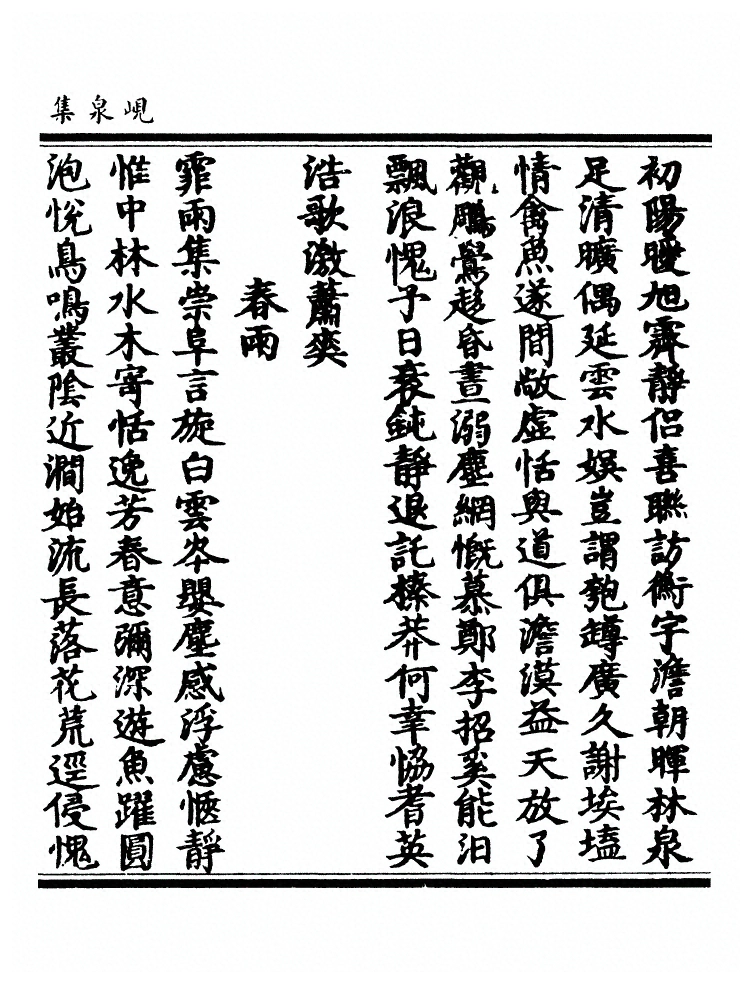 峴泉集
初陽曖旭霽靜侶喜聯訪衡宇澹朝暉林泉
足清曠偶延雲水娛豈謂匏罇廣久謝埃壒
情禽魚遂間敞虛恬與道俱澹漠益天放了
觀鵬鷽趍昏晝溺塵網慨慕鄭李招奚能汩
飄浪愧予日衰鈍靜退託榛莽何幸恊耆英
浩歌激蕭爽
春雨
霏雨集崇阜言旋白雲岑嬰塵感浮慮愜靜
惟中林水木寄恬逸芳春意彌深遊魚躍圓
泡悅鳥鳴叢陰近澗始流長落花荒逕侵愧